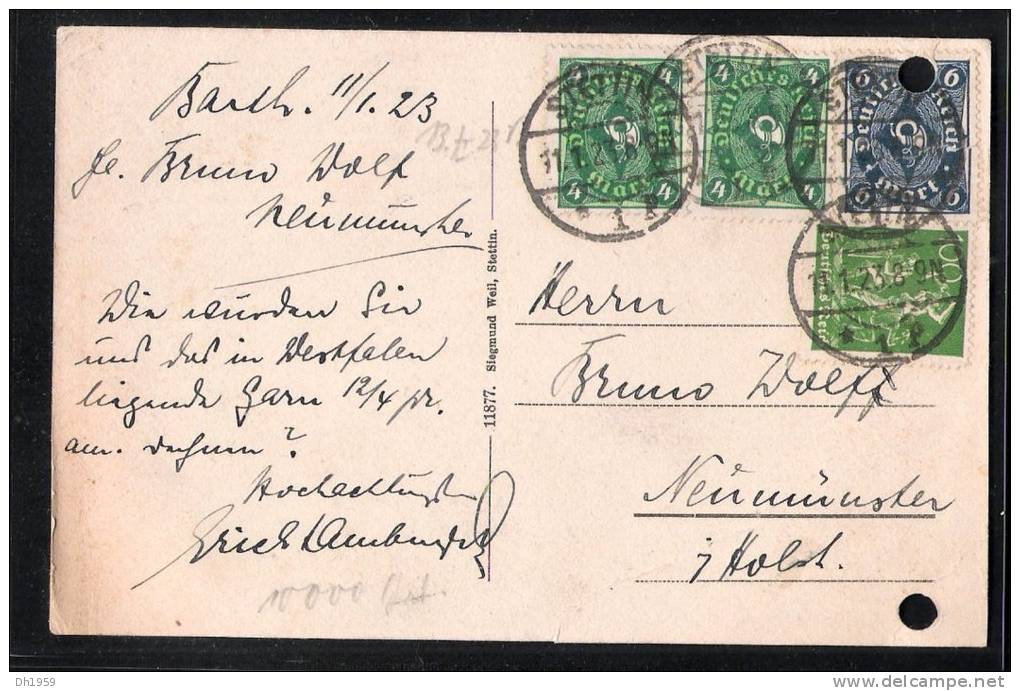 Barth. 11/1.23
Bruno Wolf
Neumünster
Wie würden Sie
uns das in Westfalen
liegende Garn 12/4 pr.
am. rechnen?
Hochachtungsvoll
Erich
11877. Siegmund Weil, Stettin.
4 4
Deutsches Reich
4 Mark 4
4 4
Deutsches Reich
4 Mark 4
6 6
Deutsches Reich
6 Mark 6
STETTIN
11.1.23.8-9N
* 1 *
Herrn
Bruno Wolff
Neumünster
i/Holst.
Dh1959
delcampe.net